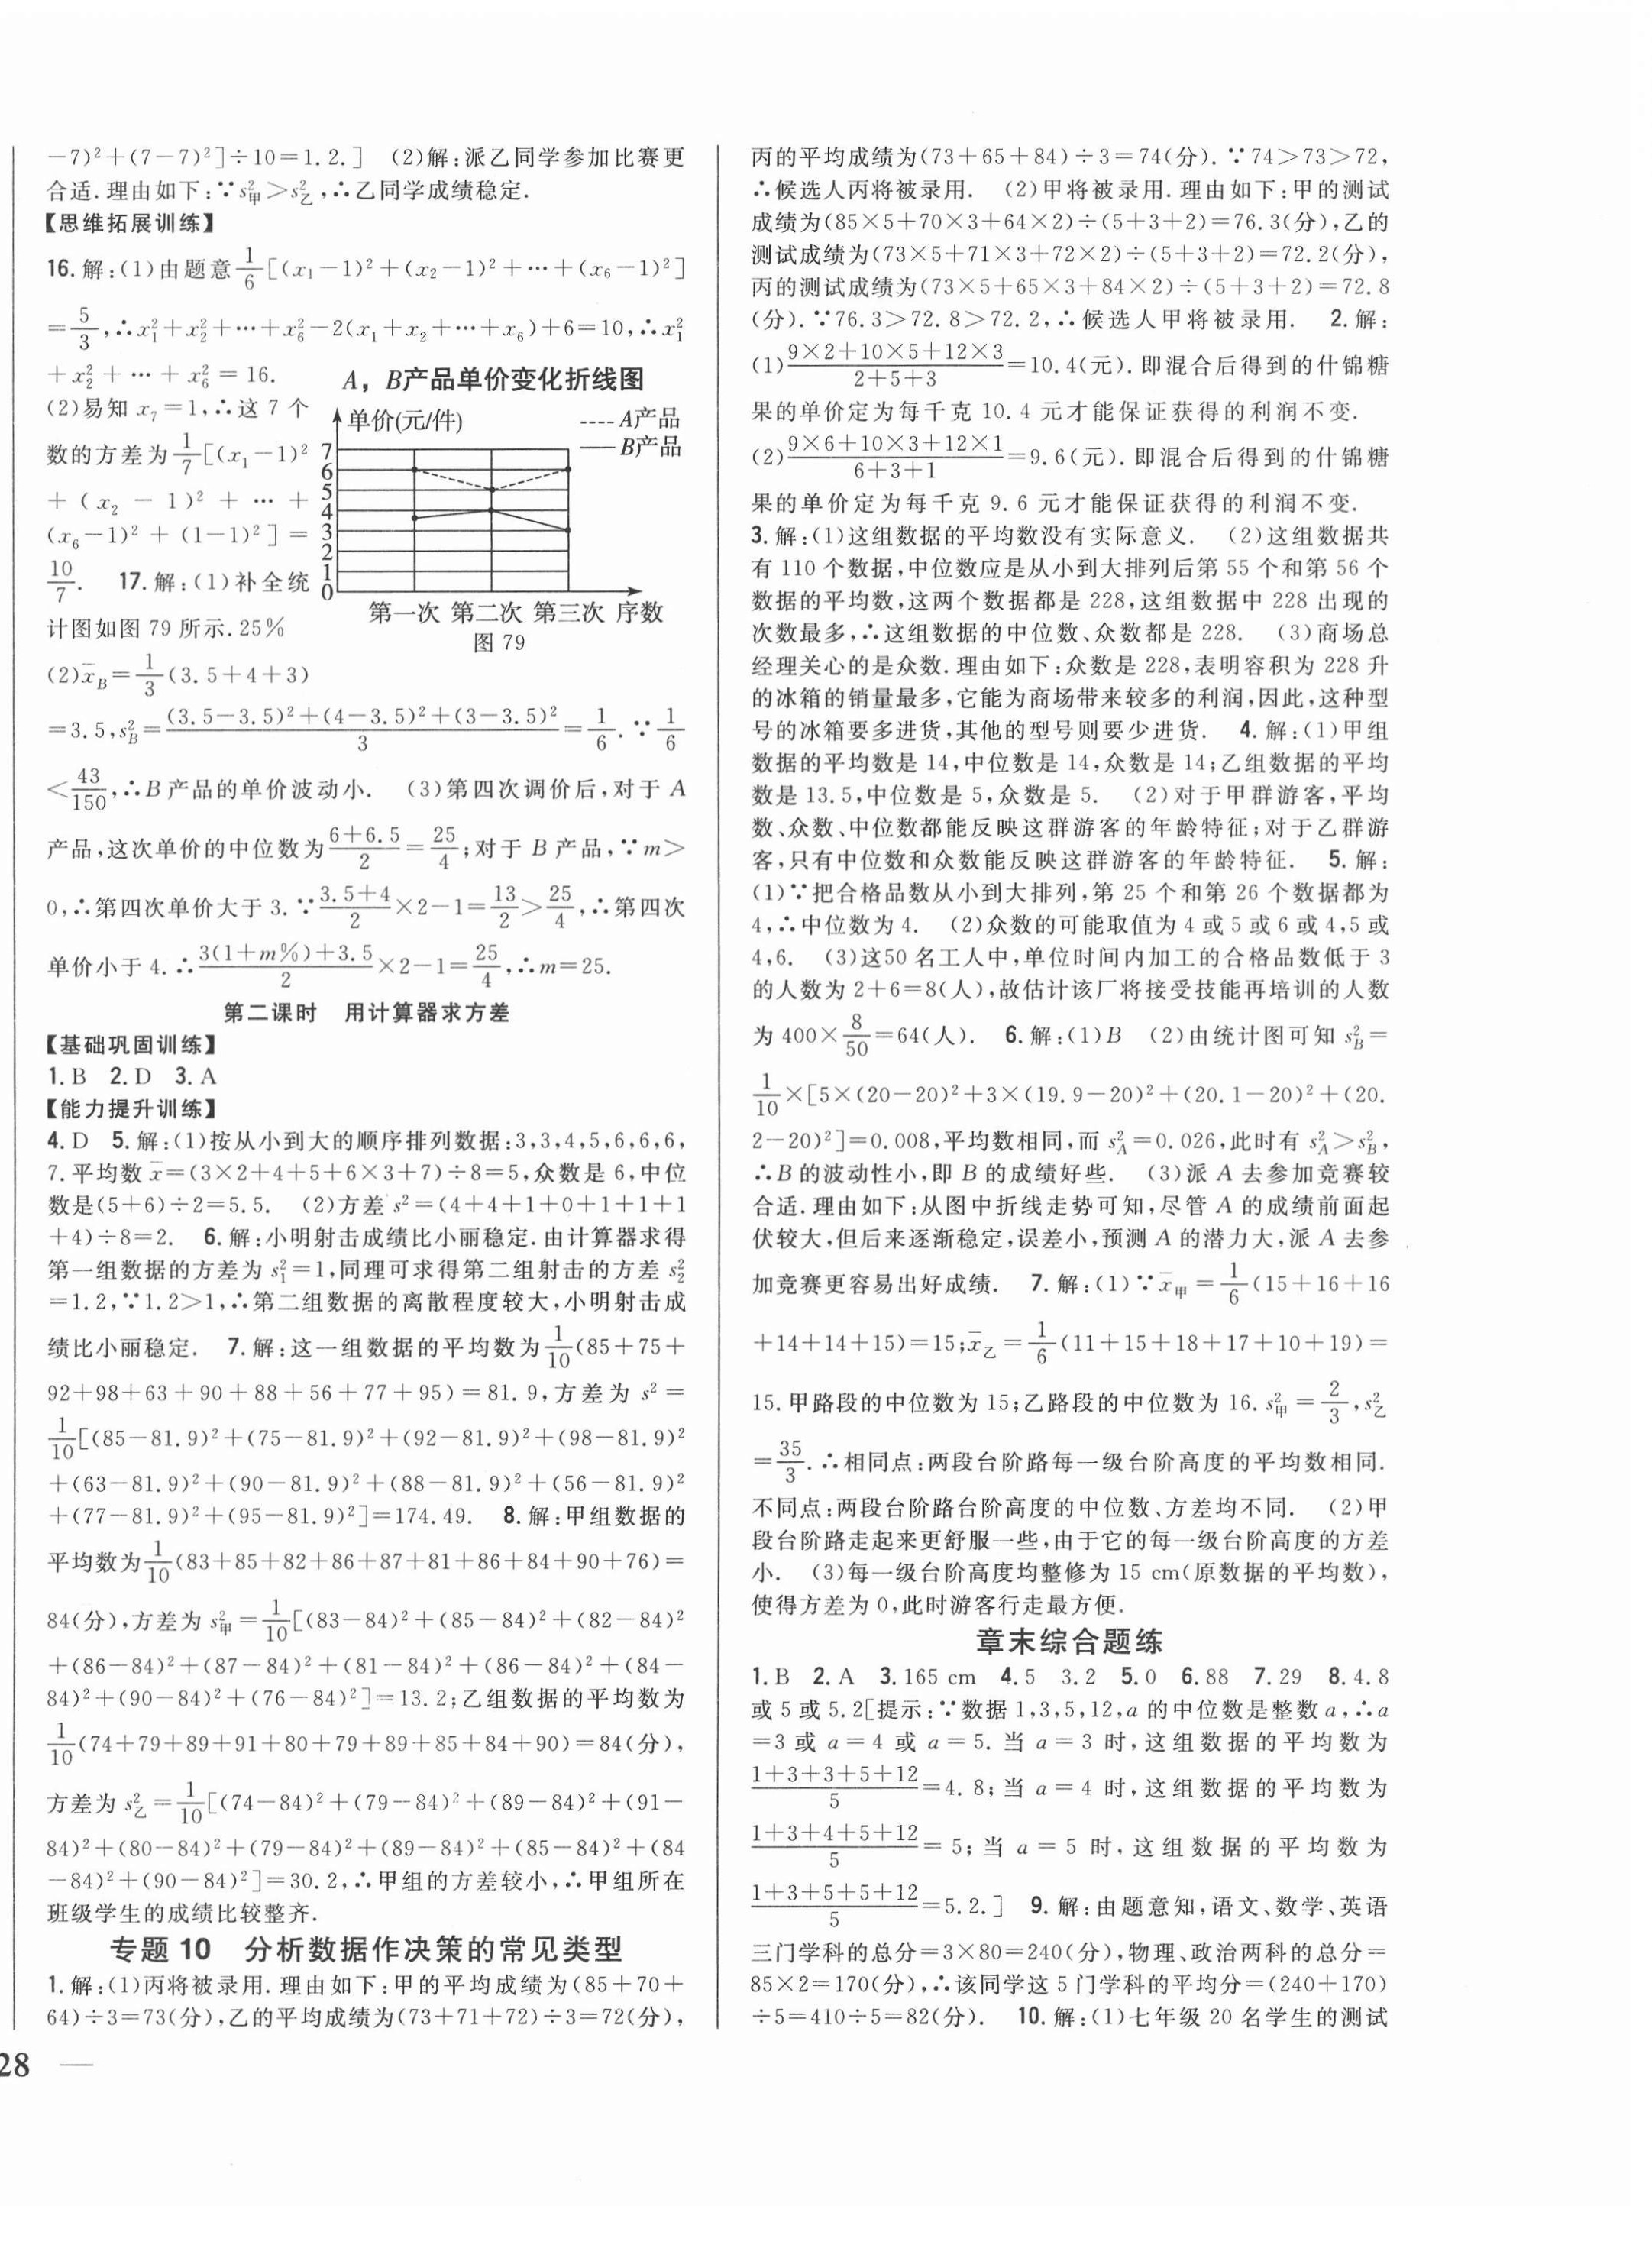 -7)²+(7-7)²]÷10=1.2.] (2)解:派乙同学参加比赛更
合适.理由如下:∵s²甲>s²乙,∴乙同学成绩稳定.
【思维拓展训练】
16.解:(1)由题意1/6[(x₁-1)²+(x₂-1)²+…+(x₆-1)²]
=5/3,∴x₁²+x₂²+…+x₆²-2(x₁+x₂+…+x₆)+6=10,∴x₁²
+x₂²+…+x₆²=16.
(2)易知 x₇=1,∴这 7 个
数的方差为1/7[(x₁-1)²
+(x₂-1)²+…+
(x₆-1)²+(1-1)²]=
10/7. 17.解:(1)补全统
计图如图 79 所示.25%
A，B产品单价变化折线图
单价(元/件)
---- A产品
—— B产品
7
6
5
4
3
2
1
0
第一次 第二次 第三次 序数
图 79
(2)x̄_B=1/3(3.5+4+3)
=3.5,s²_B=[(3.5-3.5)²+(4-3.5)²+(3-3.5)²]/3=1/6.∵1/6
<43/150,∴B 产品的单价波动小. (3)第四次调价后,对于 A
产品,这次单价的中位数为(6+6.5)/2=25/4;对于 B 产品,∵m>
0,∴第四次单价大于 3.∵(3.5+4)/2×2-1=13/2>25/4,∴第四次
单价小于 4.∴[3(1+m%)+3.5]/2×2-1=25/4,∴m=25.
第二课时 用计算器求方差
【基础巩固训练】
1.B 2.D 3.A
【能力提升训练】
4.D 5.解:(1)按从小到大的顺序排列数据:3,3,4,5,6,6,6,
7.平均数 x̄=(3×2+4+5+6×3+7)÷8=5,众数是 6,中位
数是(5+6)÷2=5.5. (2)方差 s²=(4+4+1+0+1+1+1
+4)÷8=2. 6.解:小明射击成绩比小丽稳定.由计算器求得
第一组数据的方差为 s₁²=1,同理可求得第二组射击的方差 s₂²
=1.2,∵1.2>1,∴第二组数据的离散程度较大,小明射击成
绩比小丽稳定. 7.解:这一组数据的平均数为1/10(85+75+
92+98+63+90+88+56+77+95)=81.9,方差为 s²=
1/10[(85-81.9)²+(75-81.9)²+(92-81.9)²+(98-81.9)²
+(63-81.9)²+(90-81.9)²+(88-81.9)²+(56-81.9)²
+(77-81.9)²+(95-81.9)²]=174.49. 8.解:甲组数据的
平均数为1/10(83+85+82+86+87+81+86+84+90+76)=
84(分),方差为 s²甲=1/10[(83-84)²+(85-84)²+(82-84)²
+(86-84)²+(87-84)²+(81-84)²+(86-84)²+(84-
84)²+(90-84)²+(76-84)²]=13.2;乙组数据的平均数为
1/10(74+79+89+91+80+79+89+85+84+90)=84(分),
方差为 s²乙=1/10[(74-84)²+(79-84)²+(89-84)²+(91-
84)²+(80-84)²+(79-84)²+(89-84)²+(85-84)²+(84
-84)²+(90-84)²]=30.2,∴甲组的方差较小,∴甲组所在
班级学生的成绩比较整齐.
专题 10 分析数据作决策的常见类型
1.解:(1)丙将被录用.理由如下:甲的平均成绩为(85+70+
64)÷3=73(分),乙的平均成绩为(73+71+72)÷3=72(分),
28 —
丙的平均成绩为(73+65+84)÷3=74(分).∵74>73>72,
∴候选人丙将被录用. (2)甲将被录用.理由如下:甲的测试
成绩为(85×5+70×3+64×2)÷(5+3+2)=76.3(分),乙的
测试成绩为(73×5+71×3+72×2)÷(5+3+2)=72.2(分),
丙的测试成绩为(73×5+65×3+84×2)÷(5+3+2)=72.8
(分).∵76.3>72.8>72.2,∴候选人甲将被录用. 2.解:
(1)(9×2+10×5+12×3)/(2+5+3)=10.4(元).即混合后得到的什锦糖
果的单价定为每千克 10.4 元才能保证获得的利润不变.
(2)(9×6+10×3+12×1)/(6+3+1)=9.6(元).即混合后得到的什锦糖
果的单价定为每千克 9.6 元才能保证获得的利润不变.
3.解:(1)这组数据的平均数没有实际意义. (2)这组数据共
有 110 个数据,中位数应是从小到大排列后第 55 个和第 56 个
数据的平均数,这两个数据都是 228,这组数据中 228 出现的
次数最多,∴这组数据的中位数、众数都是 228. (3)商场总
经理关心的是众数.理由如下:众数是 228,表明容积为 228 升
的冰箱的销量最多,它能为商场带来较多的利润,因此,这种型
号的冰箱要多进货,其他的型号则要少进货. 4.解:(1)甲组
数据的平均数是 14,中位数是 14,众数是 14;乙组数据的平均
数是 13.5,中位数是 5,众数是 5. (2)对于甲群游客,平均
数、众数、中位数都能反映这群游客的年龄特征;对于乙群游
客,只有中位数和众数能反映这群游客的年龄特征. 5.解:
(1)∵把合格品数从小到大排列,第 25 个和第 26 个数据都为
4,∴中位数为 4. (2)众数的可能取值为 4 或 5 或 6 或 4,5 或
4,6. (3)这50 名工人中,单位时间内加工的合格品数低于 3
的人数为 2+6=8(人),故估计该厂将接受技能再培训的人数
为 400×8/50=64(人). 6.解:(1)B (2)由统计图可知 s²_B=
1/10×[5×(20-20)²+3×(19.9-20)²+(20.1-20)²+(20.
2-20)²]=0.008,平均数相同,而 s²_A=0.026,此时有 s²_A>s²_B,
∴B 的波动性小,即 B 的成绩好些. (3)派 A 去参加竞赛较
合适.理由如下:从图中折线走势可知,尽管 A 的成绩前面起
伏较大,但后来逐渐稳定,误差小,预测 A 的潜力大,派 A 去参
加竞赛更容易出好成绩. 7.解:(1)∵x̄甲=1/6(15+16+16
+14+14+15)=15;x̄乙=1/6(11+15+18+17+10+19)=
15.甲路段的中位数为 15;乙路段的中位数为 16.s²甲=2/3,s²乙
=35/3.∴相同点:两段台阶路每一级台阶高度的平均数相同.
不同点:两段台阶路台阶高度的中位数、方差均不同. (2)甲
段台阶路走起来更舒服一些,由于它的每一级台阶高度的方差
小. (3)每一级台阶高度均整修为 15 cm(原数据的平均数),
使得方差为 0,此时游客行走最方便.
章末综合题练
1.B 2.A 3.165 cm 4.5 3.2 5.0 6.88 7.29 8.4.8
或 5 或 5.2[提示:∵数据 1,3,5,12,a 的中位数是整数 a,∴a
=3 或 a=4 或 a=5.当 a=3 时,这组数据的平均数为
(1+3+3+5+12)/5=4.8;当 a=4 时,这组数据的平均数为
(1+3+4+5+12)/5=5;当 a=5 时,这组数据的平均数为
(1+3+5+5+12)/5=5.2.] 9.解:由题意知,语文、数学、英语
三门学科的总分=3×80=240(分),物理、政治两科的总分=
85×2=170(分),∴该同学这 5 门学科的平均分=(240+170)
÷5=410÷5=82(分). 10.解:(1)七年级 20 名学生的测试